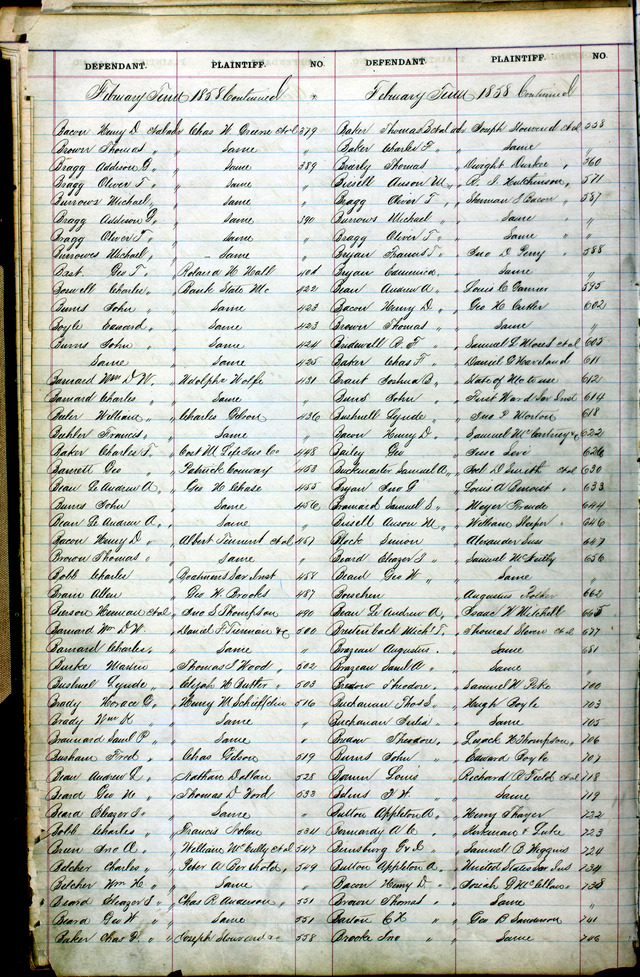 DEFENDANT. PLAINTIFF. NO.
February Term 1858 Continued
Bacon Henry D et al adv Chas W. Greene et al 379
Brown Thomas " Same "
Bragg Addison G " Same 389
Bragg Oliver T " Same "
Burrows Michael " Same "
Bragg Addison G " Same 390
Bragg Oliver T " Same "
Burrowes Michael " Same "
Bast Geo T " Roland H Hall 404
Boswell Charles " Bank State Mo 422
Burns John " Same 423
Boyle Edward " Same 423
Burns John " Same 424
Same " Same 425
Barnard Wm D W. " Adolphe Wolfe 431
Barnard Charles " Same "
Charles Gibson 436
Francis " Same "
Baker Charles F. " Cort M Life Ins Co 448
Barnett Geo " Patrick Conway 453
Bean Le Andrew A. " Geo H Chase 455
Burns John " Same 456
Bean Le Andrew A. " Same "
Bacon Henry D " Albert et al 457
Brown Thomas " Same "
Bobb Charles " Boatmens Sav Inst 484
Allen " Geo W Brooks 487
Benson et al " Jno S Thompson 490
Barnard Wm D W. " Daniel F. & C 500
Barnard Charles " Same "
Burke Martin " Thomas S Wood 502
Bushnel Lynde " Elijah H Butler 503
Brady Horace " Henry M Schieffelin 516
Brady Wm H " Same "
Brainard Saml P " Same "
Basham Fred " Chas Gibson 519
Bean Andrew L. " Nathan Dollan 528
Beard Geo W " Thomas D Ford 533
Beard Eleazer S " Same "
Bobb Charles " Francis Nolan 534
Jno A " William W et al 547
Belcher Charles " Peter A Berthold 549
Belcher Wm H " Same "
Beard Eleazer S " Chas R Anderson 551
Beard Geo W " Same 551
Baker Chas F. " Joseph 558
DEFENDANT. PLAINTIFF. NO.
February Term 1858 Continued
Baker Thomas B et al adv Joseph et al 558
Baker Charles F " Same "
Thomas " Dwight Durkee 560
Bissell Anson M " R. I Hutchinson 571
Bragg Oliver T " Sherman S Bacon 587
Burrows Michael " Same "
Bragg Oliver T " Same "
Bryan Francis T " Jno D Perry 588
Bryan Edmonia " Same "
Bean Andrew A " Louis C Garnier 595
Bacon Henry D " Geo H Cutler 602
Brown Thomas " Same "
Bridwell R. T " Samuel L Moses et al 603
Baker Chas F " Daniel G Haveland 611
Brant Joshua B " State of Mo to use 612
Burns John " First Ward Sav Inst 614
Bushnell Lynde " Jno P Morton 618
Bacon Henry D. " Samuel McCartney & C 622
Bailey Geo " Jesse Love 626
Buckmaster Samuel A " Joel D Smith et al 630
Bryan Jno G " Louis A Benoist 633
Brainard Samuel S " Meyer Friede 644
Bissell Anson M " William 646
Block Simon " Alexander 647
Beard Eleazer S " Samuel McNulty 656
Beard Geo W " Same "
Augustus 662
Bean Le Andrew A " Isaac H Mitchell 665
Breitenbach Mich'l F. " Thomas et al 677
Brazeau Augustus " Same 681
Brazeau Saml A " Same "
Bredow Theodore " Samuel W Pike 700
Buchanan Thos S " Hugh Boyle 703
Buchanan " Same 705
Bredow Theodore " H Thompson 706
Burns John " Edward Boyle 707
Louis " Richard P Fields et al 718
" Same 719
Button Appleton A " Henry Thayer 722
Bernardy A C " Kirkman & Luke 723
" Samuel B Wiggins 724
Button Appleton A " United States Sav Ins 734
Bacon Henry D " Josiah G McClellan 738
Brown Thomas " Same "
" Geo B Sanderson 741
Brooke Jno " Same 746